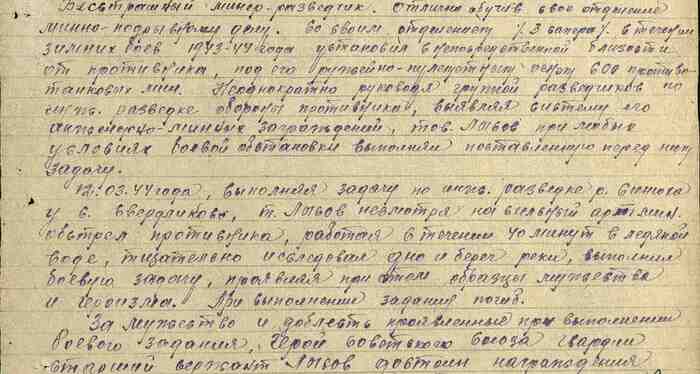 Бесстрашный минер-разведчик. Отлично обучив свое отделение
минно-подрывному делу. Со своим отделением /3 сапера/ в течении
зимних боев 1943-44 года установил в непосредственной близости
от противника, под его ружейно-пулеметным огнем 600 противо-
танковых мин. Неоднократно руководя группой разведчиков по
инж. разведке обороны противника, выявляя систему его
инженерно-минных заграждений, тов. Лызов при любых
условиях боевой обстановки выполнял поставленную перед ним
задачу.
12.03.44 года, выполняя задачу по инж. разведке р.
у с. т. Лызов несмотря на сильный арт. мин.
обстрел противника, работая в течении 40 минут в ледяной
воде, тщательно исследовал дно и берег реки, выполнил
боевую задачу, проявляя при этом образцы мужества
и героизма. При выполнении задания погиб.
За мужество и доблесть проявленные при выполнении
боевого задания, Герой Советского Союза гвардии
старший сержант Лызов достоин награждения